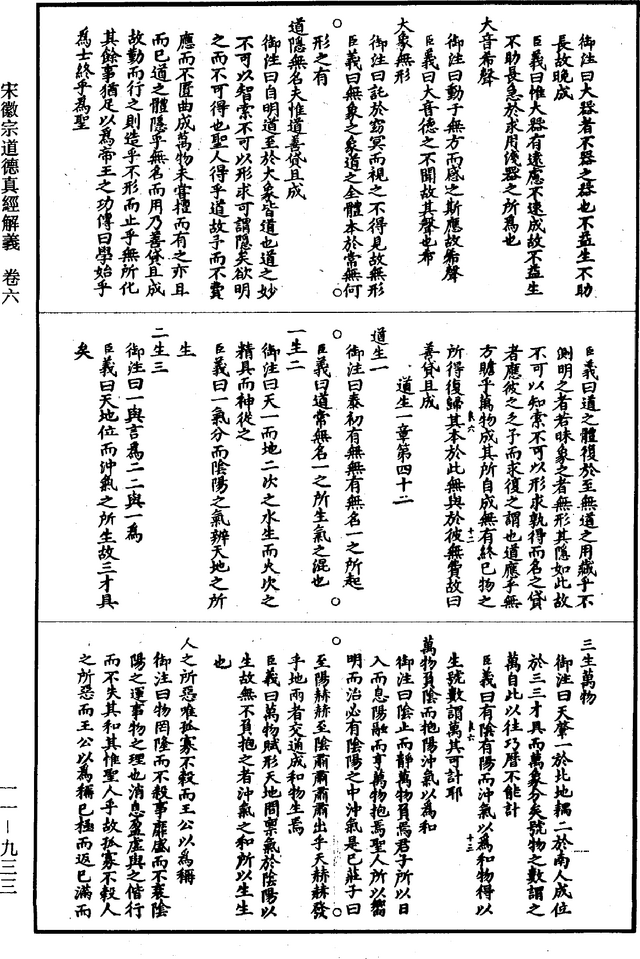 御注曰大器者不器之器也不益生不助
長故晚成
臣義曰惟大器有遠慮不速成故不益生
不助長急於求用淺器之所為也
大音希聲
御注曰動于無方而感之斯應故希聲
臣義曰大音德之不聞故其聲也希
大象無形
御注曰託於窈冥而視之不得見故無形
臣義曰無象之象道之全體本於常無何
形之有
道隱無名夫惟道善貸且成
御注曰自明道至於大象皆道也道之妙
不可以智索不可以形求可謂隱矣欲明
之而不可得也聖人得乎道故予而不費
應而不匱曲成萬物未嘗擅而有之亦且
而已道之體隱乎無名而用乃善貸且成
故勤而行之則造乎不形而止乎無所化
其餘事猶足以為帝王之功傳曰學始乎
為士終乎為聖
臣義曰道之體復於至無道之用藏乎不
測明之者若昧象之者無形其隱如此故
不可以知索不可以形求孰得而名之貸
者應彼之乏予而求復之謂也道應乎無
方贍乎萬物成其所自成無有終已物之
所得復歸其本於此無與於彼無費故曰
善貸且成
道生一章第四十二
道生一
御注曰泰初有無無有無名一之所起
臣義曰道常無名一之所生氣之混也
一生二
御注曰天一而地二次之水生而火次之
精具而神從之
臣義曰一氣分而陰陽之氣辨天地之所
生
二生三
御注曰一與言為二二與一為
臣義曰天地位而沖氣之所生故三才具
矣
三生萬物
御注曰天肇一於北地耦二於南人成位
於三三才具而萬象分矣號物之數謂之
萬自此以往巧曆不能計
臣義曰有陰有陽而沖氣以為和物得以
生號數謂萬其可計耶
萬物負陰而抱陽沖氣以為和
御注曰陰止而靜萬物負焉君子所以日
入而息陽融而亨萬物抱焉聖人所以嚮
明而治必有陰陽之中沖氣是已莊子曰
至陽赫赫至陰肅肅肅肅出乎天赫赫發
乎地兩者交通成和物生焉
臣義曰萬物賦形天地間稟氣於陰陽以
生故無不負抱之者沖氣之和所以生生
也
人之所惡惟孤寡不穀而王公以為稱
御注曰物罔隆而不殺事靡盛而不衰陰
陽之運事物之理也消息盈虛與之偕行
而不失其和其惟聖人乎故孤寡不穀人
之所惡而王公以為稱已極而返已滿而
宋徽宗道德真經解義 卷六
一一—九三三